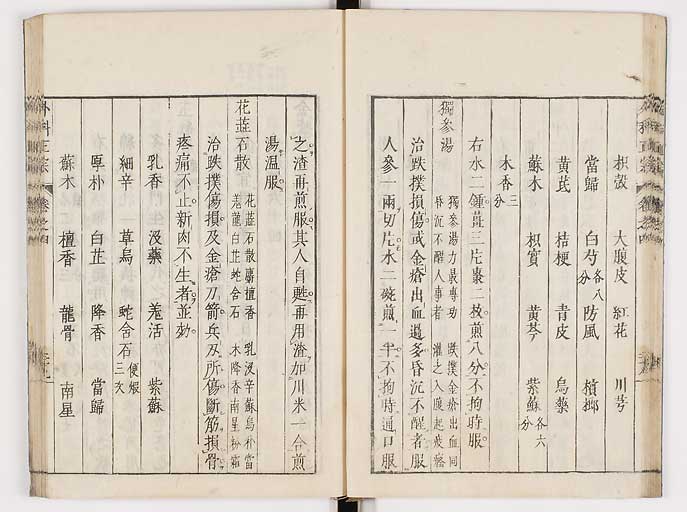 枳殼 大腹皮 紅花 川芎
當歸 白芍各八分 防風 檳榔
黃芪 桔梗 青皮 烏藥
蘇木 枳實 黃芩 紫蘇各六分
木香三分
右水二鍾薑三片棗二枚煎八分不拘時服
獨參湯 獨參湯力最專功 跌撲金瘡出血同
昏沉不醒人事者 灌之入腹起疲癃
治跌撲損傷或金瘡出血過多昏沉不醒者服
人參一兩切片水二碗煎一半不拘時通口服
之渣再煎服其人自甦再用渣加川米一合煎
湯溫服
花蕋石散 花蕋石散麝檀香 乳沒辛蘇烏朴當
羗薷白芷蛇含石 木降香南星粉霜
治跌撲傷損及金瘡刀箭兵刃所傷斷筋損骨
疼痛不止新肉不生者並効
乳香 沒藥 羗活 紫蘇
細辛 草烏 蛇含石便煅三次
厚朴 白芷 降香 當歸
蘇木 檀香 龍骨 南星
外科正宗 卷之四